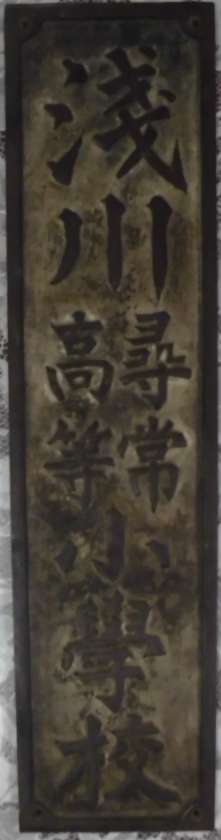 淺川
尋常
高等
小學校